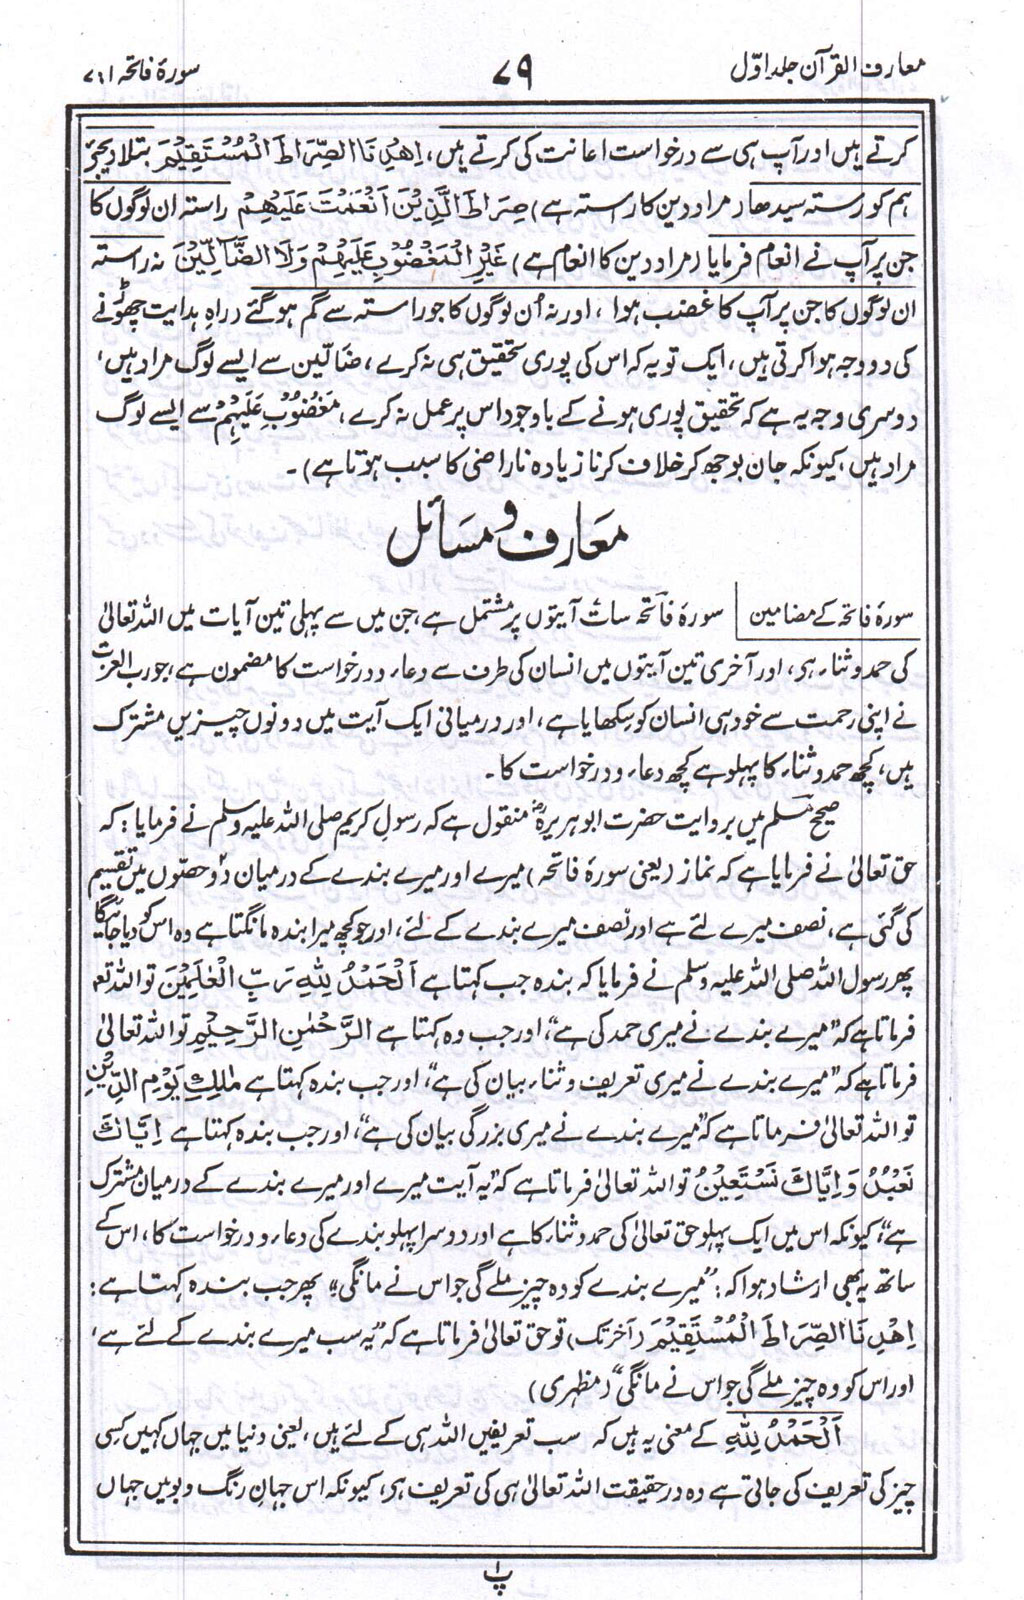 معارف القرآن جلد اوّل
۷۹
سورۂ فاتحہ ۱:۷
کرتے ہیں اور آپ ہی سے درخواست اعانت کی کرتے ہیں، اِهْدِنَا الصِّرَاطَ الْمُسْتَقِيْمَ بتلا دیجئے
ہم کو رستہ سیدھا (مراد دین کا رستہ ہے) صِرَاطَ الَّذِيْنَ اَنْعَمْتَ عَلَيْهِمْ راستہ ان لوگوں کا
جن پر آپ نے انعام فرمایا (مراد دین کا انعام ہے) غَيْرِ الْمَغْضُوْبِ عَلَيْهِمْ وَلَا الضَّآلِّيْنَ نہ راستہ
ان لوگوں کا جن پر آپ کا غضب ہوا، اور نہ اُن لوگوں کا جو راستہ سے گم ہوگئے (راہِ ہدایت چھوڑنے
کی دو وجہ ہوا کرتی ہیں، ایک تو یہ کہ اس کی پوری تحقیق ہی نہ کرے، ضالّین سے ایسے لوگ مراد ہیں،
دوسری وجہ یہ ہے کہ تحقیق پوری ہونے کے باوجود اس پر عمل نہ کرے، مَغْضُوْبِ عَلَيْهِمْ سے ایسے لوگ
مراد ہیں، کیونکہ جان بوجھ کر خلاف کرنا زیادہ ناراضی کا سبب ہوتا ہے)۔
معارف و مسائل
سورۂ فاتحہ کے مضامین سورۂ فاتحہ سات آیتوں پر مشتمل ہے، جن میں سے پہلی تین آیات میں اللہ تعالیٰ
کی حمد و ثناء ہی، اور آخری تین آیتوں میں انسان کی طرف سے دعاء و درخواست کا مضمون ہے، جو رب العزت
نے اپنی رحمت سے خود ہی انسان کو سکھایا ہے، اور درمیانی ایک آیت میں دونوں چیزیں مشترک
ہیں، کچھ حمد و ثناء کا پہلو ہے کچھ دعاء و درخواست کا۔
صحیح مسلم میں بروایت حضرت ابوہریرہؓ منقول ہے کہ رسول کریم صلی اللہ علیہ وسلم نے فرمایا: کہ
حق تعالیٰ نے فرمایا ہے کہ نماز (یعنی سورۂ فاتحہ) میرے اور میرے بندے کے درمیان دو حصّوں میں تقسیم
کی گئی ہے، نصف میرے لئے ہے اور نصف میرے بندے کے لئے، اور جو کچھ میرا بندہ مانگتا ہے وہ اس کو دیا جائیگا
پھر رسول اللہ صلی اللہ علیہ وسلم نے فرمایا کہ بندہ جب کہتا ہے اَلْحَمْدُ لِلّٰهِ رَبِّ الْعٰلَمِيْنَ تو اللہ تعہ
فرماتا ہے کہ "میرے بندے نے میری حمد کی ہے"، اور جب وہ کہتا ہے الرَّحْمٰنِ الرَّحِيْمِ تو اللہ تعالیٰ
فرماتا ہے کہ "میرے بندے نے میری تعریف و ثناء بیان کی ہے"، اور جب بندہ کہتا ہے مٰلِكِ يَوْمِ الدِّيْنِ
تو اللہ تعالیٰ فرماتا ہے کہ "میرے بندے نے میری بزرگی بیان کی ہے"، اور جب بندہ کہتا ہے اِيَّاكَ
نَعْبُدُ وَاِيَّاكَ نَسْتَعِيْنُ تو اللہ تعالیٰ فرماتا ہے کہ "یہ آیت میرے اور میرے بندے کے درمیان مشترک
ہے"، کیونکہ اس میں ایک پہلو حق تعالیٰ کی حمد و ثناء کا ہے اور دوسرا پہلو بندے کی دعاء و درخواست کا، اس کے
ساتھ یہ بھی ارشاد ہوا کہ: "میرے بندے کو وہ چیز ملے گی جو اس نے مانگی" پھر جب بندہ کہتا ہے:
اِهْدِنَا الصِّرَاطَ الْمُسْتَقِيْمَ (آخر تک) تو حق تعالیٰ فرماتا ہے کہ "یہ سب میرے بندے کے لئے ہے،
اور اس کو وہ چیز ملے گی جو اس نے مانگی" (مظہری)
اَلْحَمْدُ لِلّٰهِ کے معنی یہ ہیں کہ سب تعریفیں اللہ ہی کے لئے ہیں، یعنی دنیا میں جہاں کہیں کسی
چیز کی تعریف کی جاتی ہے وہ درحقیقت اللہ تعالیٰ ہی کی تعریف ہی، کیونکہ اس جہانِ رنگ و بو میں جہاں
پ۱